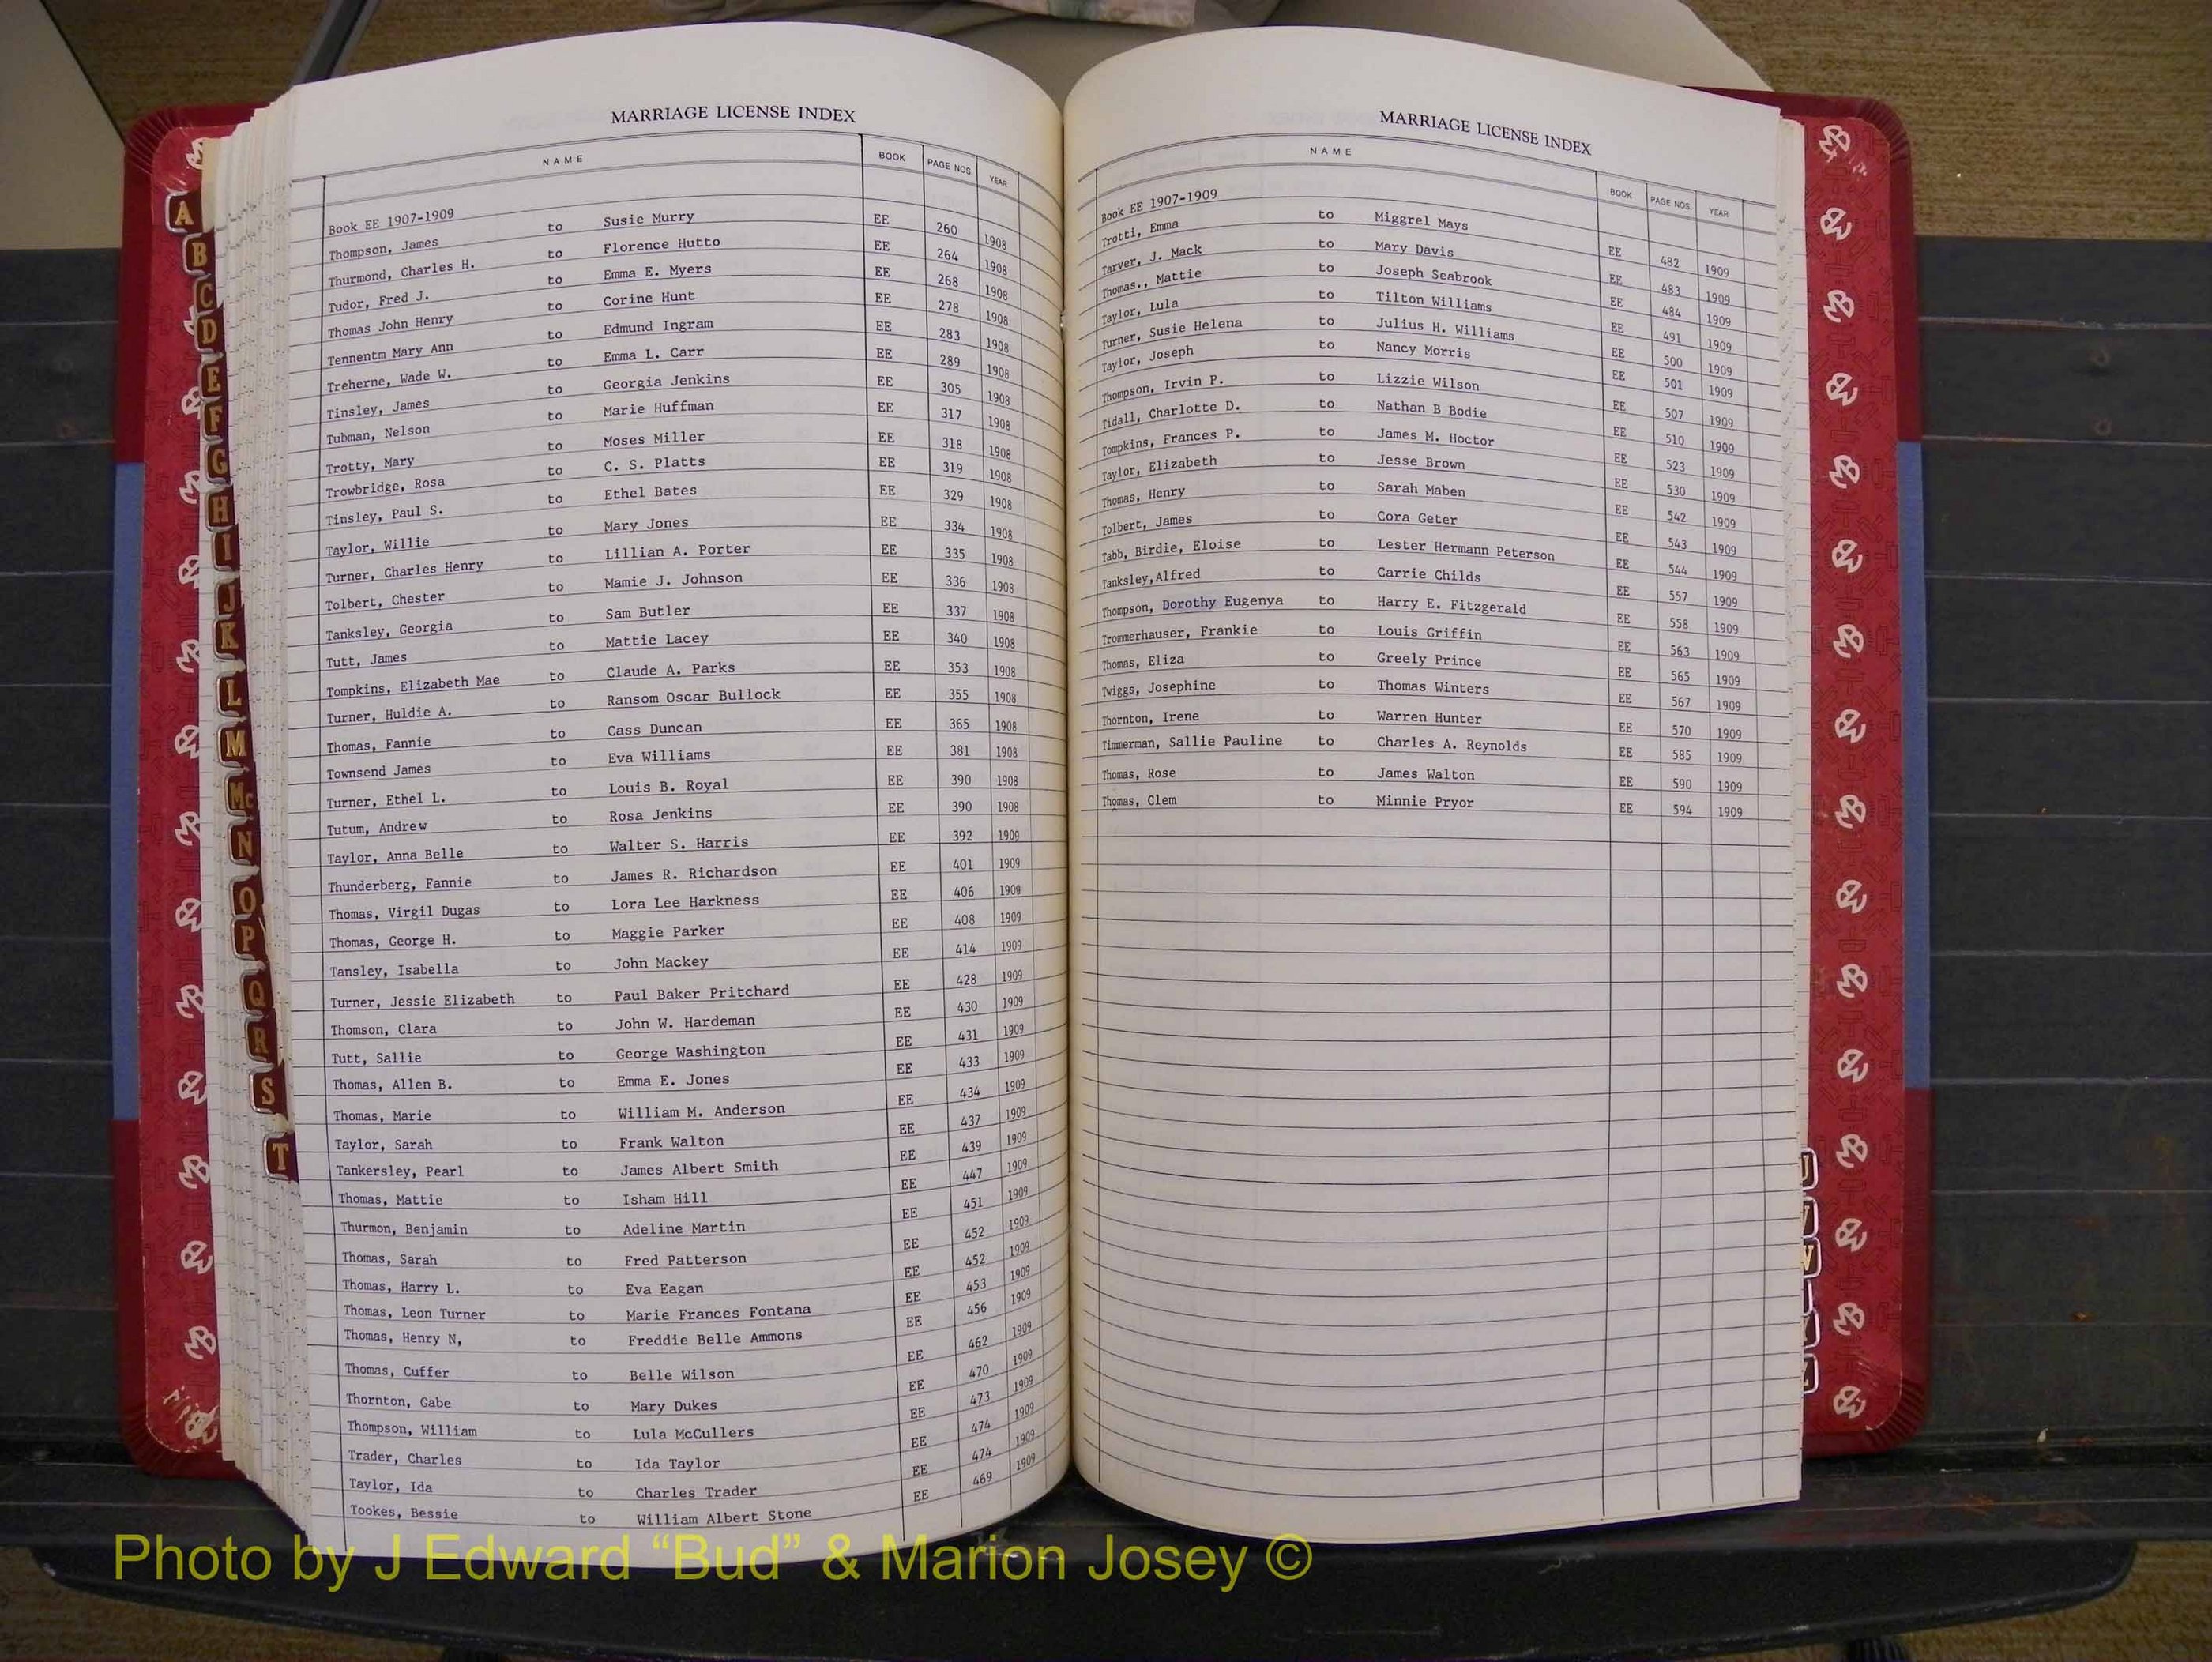 MARRIAGE LICENSE INDEX
NAME BOOK PAGE NOS. YEAR
Book EE 1907-1909
Thompson, James to Susie Murry EE 260 1908
Thurmond, Charles H. to Florence Hutto EE 264 1908
Tudor, Fred J. to Emma E. Myers EE 268 1908
Thomas John Henry to Corine Hunt EE 278 1908
Tennentm Mary Ann to Edmund Ingram EE 283 1908
Treherne, Wade W. to Emma L. Carr EE 289 1908
Tinsley, James to Georgia Jenkins EE 305 1908
Tubman, Nelson to Marie Huffman EE 317 1908
Trotty, Mary to Moses Miller EE 318 1908
Trowbridge, Rosa to C. S. Platts EE 319 1908
Tinsley, Paul S. to Ethel Bates EE 329 1908
Taylor, Willie to Mary Jones EE 334 1908
Turner, Charles Henry to Lillian A. Porter EE 335 1908
Tolbert, Chester to Mamie J. Johnson EE 336 1908
Tanksley, Georgia to Sam Butler EE 337 1908
Tutt, James to Mattie Lacey EE 340 1908
Tompkins, Elizabeth Mae to Claude A. Parks EE 353 1908
Turner, Huldie A. to Ransom Oscar Bullock EE 355 1908
Thomas, Fannie to Cass Duncan EE 365 1908
Townsend James to Eva Williams EE 381 1908
Turner, Ethel L. to Louis B. Royal EE 390 1908
Tutum, Andrew to Rosa Jenkins EE 390 1908
Taylor, Anna Belle to Walter S. Harris EE 392 1909
Thunderberg, Fannie to James R. Richardson EE 401 1909
Thomas, Virgil Dugas to Lora Lee Harkness EE 406 1909
Thomas, George H. to Maggie Parker EE 408 1909
Tansley, Isabella to John Mackey EE 414 1909
Turner, Jessie Elizabeth to Paul Baker Pritchard EE 428 1909
Thomson, Clara to John W. Hardeman EE 430 1909
Tutt, Sallie to George Washington EE 431 1909
Thomas, Allen B. to Emma E. Jones EE 433 1909
Thomas, Marie to William M. Anderson EE 434 1909
Taylor, Sarah to Frank Walton EE 437 1909
Tankersley, Pearl to James Albert Smith EE 439 1909
Thomas, Mattie to Isham Hill EE 447 1909
Thurmon, Benjamin to Adeline Martin EE 451 1909
Thomas, Sarah to Fred Patterson EE 452 1909
Thomas, Harry L. to Eva Eagan EE 452 1909
Thomas, Leon Turner to Marie Frances Fontana EE 453 1909
Thomas, Henry N, to Freddie Belle Ammons EE 456 1909
Thomas, Cuffer to Belle Wilson EE 462 1909
Thornton, Gabe to Mary Dukes EE 470 1909
Thompson, William to Lula McCullers EE 473 1909
Trader, Charles to Ida Taylor EE 474 1909
Taylor, Ida to Charles Trader EE 474 1909
Tookes, Bessie to William Albert Stone EE 469 1909
MARRIAGE LICENSE INDEX
NAME BOOK PAGE NOS. YEAR
Book EE 1907-1909
Trotti, Emma to Miggrel Mays EE 482 1909
Tarver, J. Mack to Mary Davis EE 483 1909
Thomas., Mattie to Joseph Seabrook EE 484 1909
Taylor, Lula to Tilton Williams EE 491 1909
Turner, Susie Helena to Julius H. Williams EE 500 1909
Taylor, Joseph to Nancy Morris EE 501 1909
Thompson, Irvin P. to Lizzie Wilson EE 507 1909
Tidall, Charlotte D. to Nathan B Bodie EE 510 1909
Tompkins, Frances P. to James M. Hoctor EE 523 1909
Taylor, Elizabeth to Jesse Brown EE 530 1909
Thomas, Henry to Sarah Maben EE 542 1909
Tolbert, James to Cora Geter EE 543 1909
Tabb, Birdie, Eloise to Lester Hermann Peterson EE 544 1909
Tanksley,Alfred to Carrie Childs EE 557 1909
Thompson, Dorothy Eugenya to Harry E. Fitzgerald EE 558 1909
Trommerhauser, Frankie to Louis Griffin EE 563 1909
Thomas, Eliza to Greely Prince EE 565 1909
Twiggs, Josephine to Thomas Winters EE 567 1909
Thornton, Irene to Warren Hunter EE 570 1909
Timmerman, Sallie Pauline to Charles A. Reynolds EE 585 1909
Thomas, Rose to James Walton EE 590 1909
Thomas, Clem to Minnie Pryor EE 594 1909
A
B
C
D
E
F
G
H
I
J
K
L
M
Mc
N
O
P
Q
R
S
T
Photo by J Edward “Bud” & Marion Josey ©